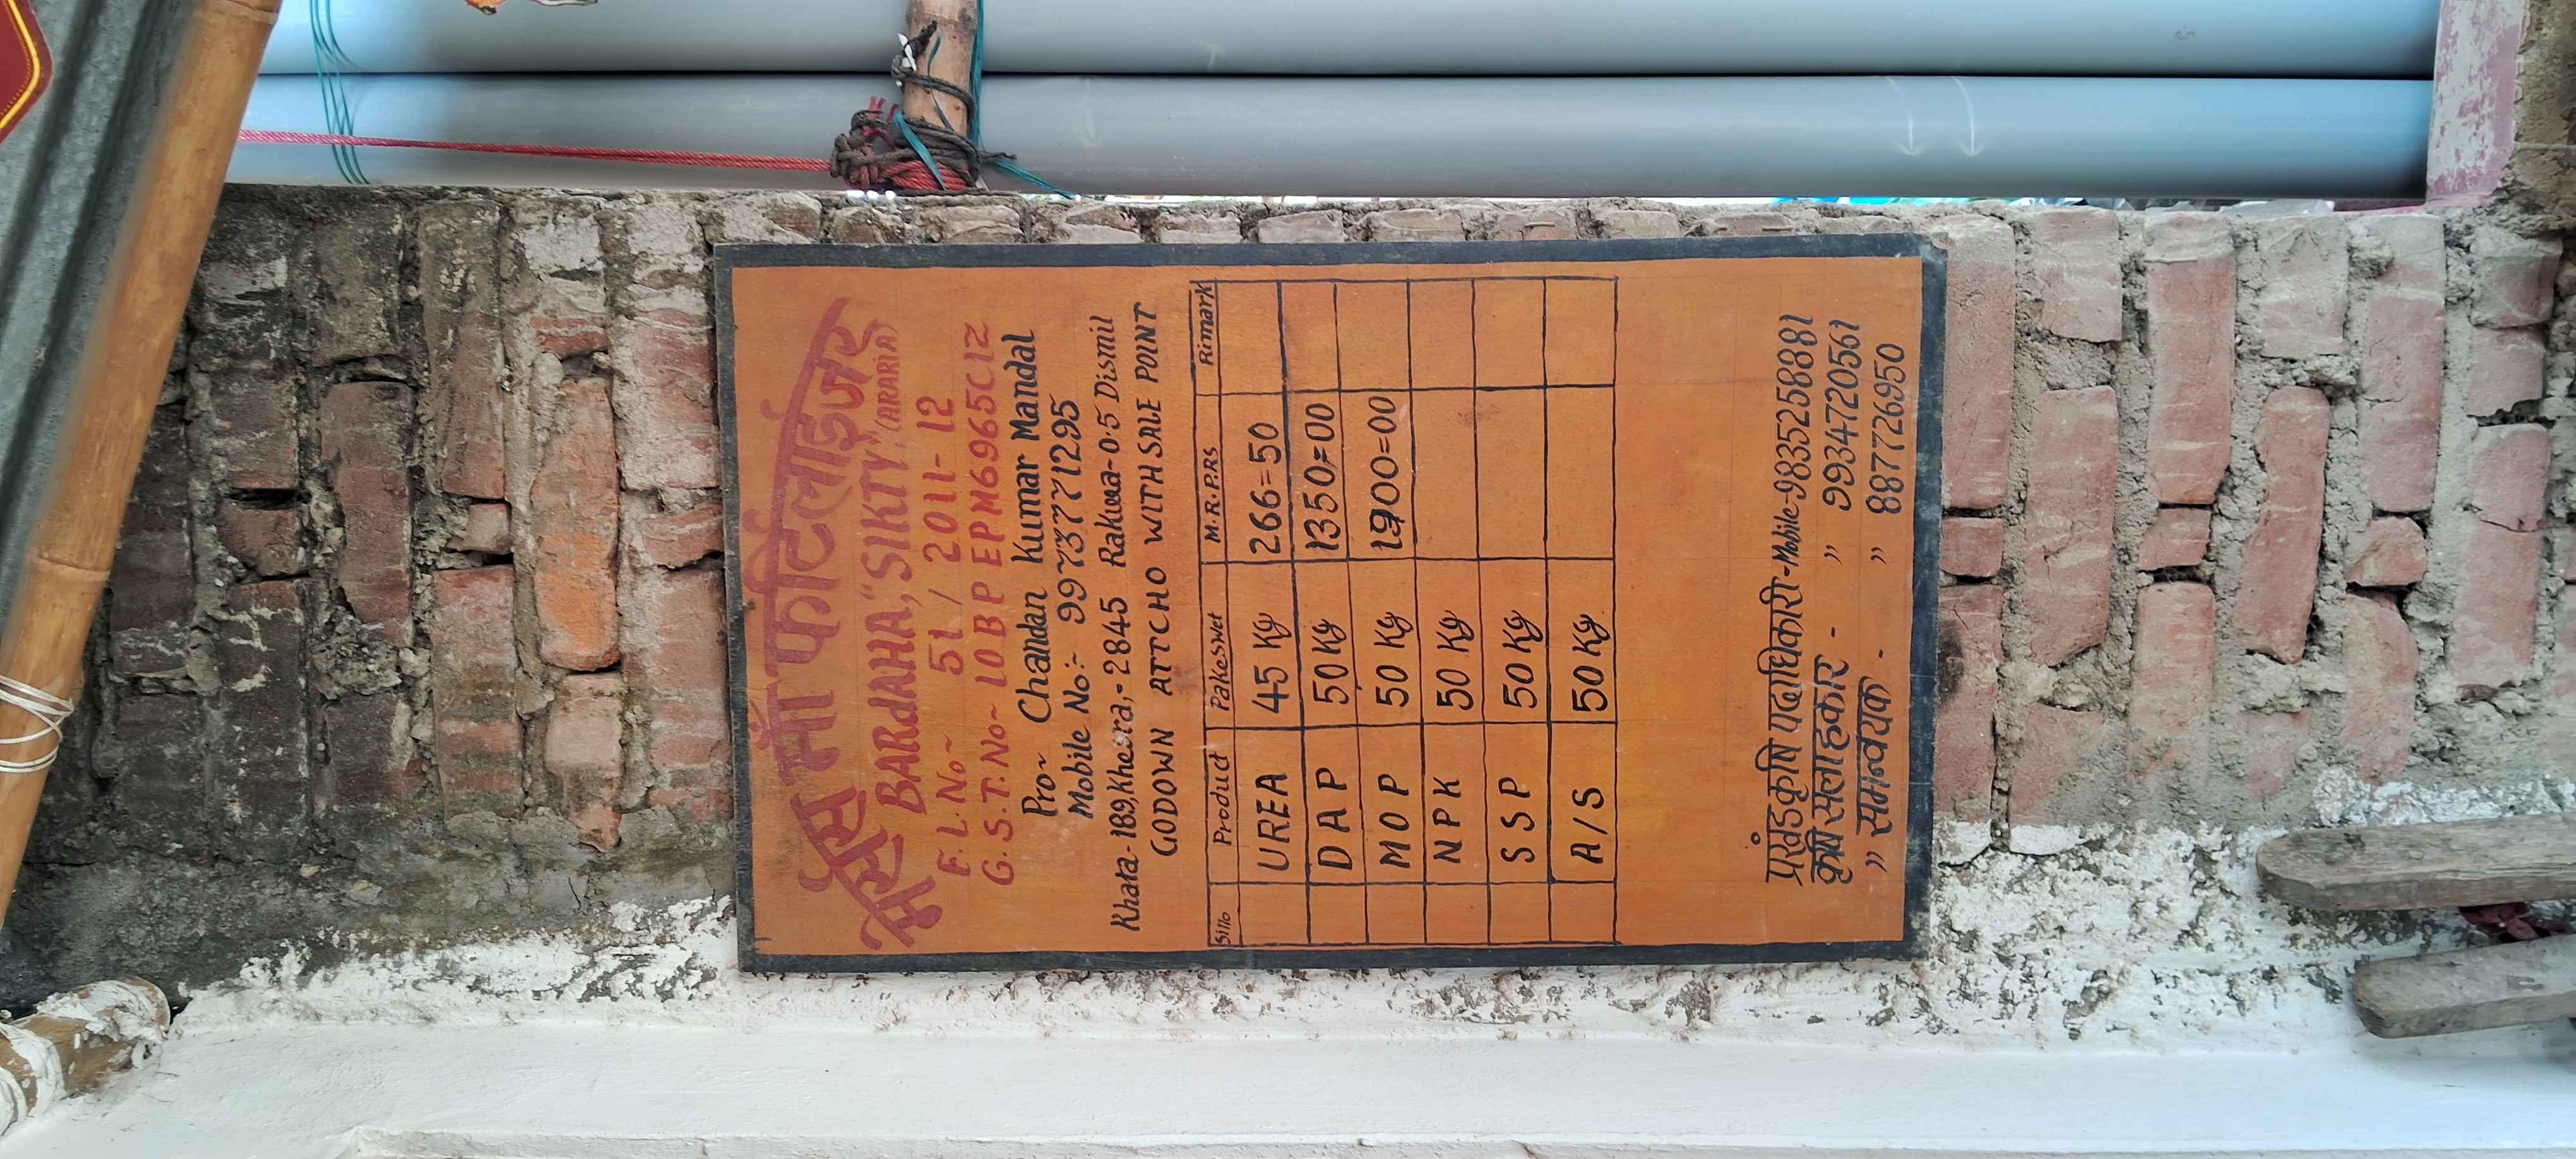 मेसर्स माँ फर्टिलाईजर
BARDAHA, "SIKTY" (ARARIA)
F. L. No~ 51 / 2011-12
G. S. T. No~ 10 B P EPM6965C1Z
Pro~ Chandan Kumar Mandal
Mobile No:- 9973771295
Khata-189, Khesra,-2845 Rakwa-0.5 Dismil
GODOWN ATTCHO WITH SALE POINT
Slno Product Pakeswet M.R.P.RS Rimark
UREA 45 Kg 266=50
DAP 50 Kg 1350=00
MOP 50 Kg 1900=00
NPK 50 Kg
SSP 50 Kg
A/S 50 Kg
प्रखंड कृषि पदाधिकारी-Mobile-9835258881
कृषि सलाहकार - " 9934720561
" समन्वयक - " 8877726950